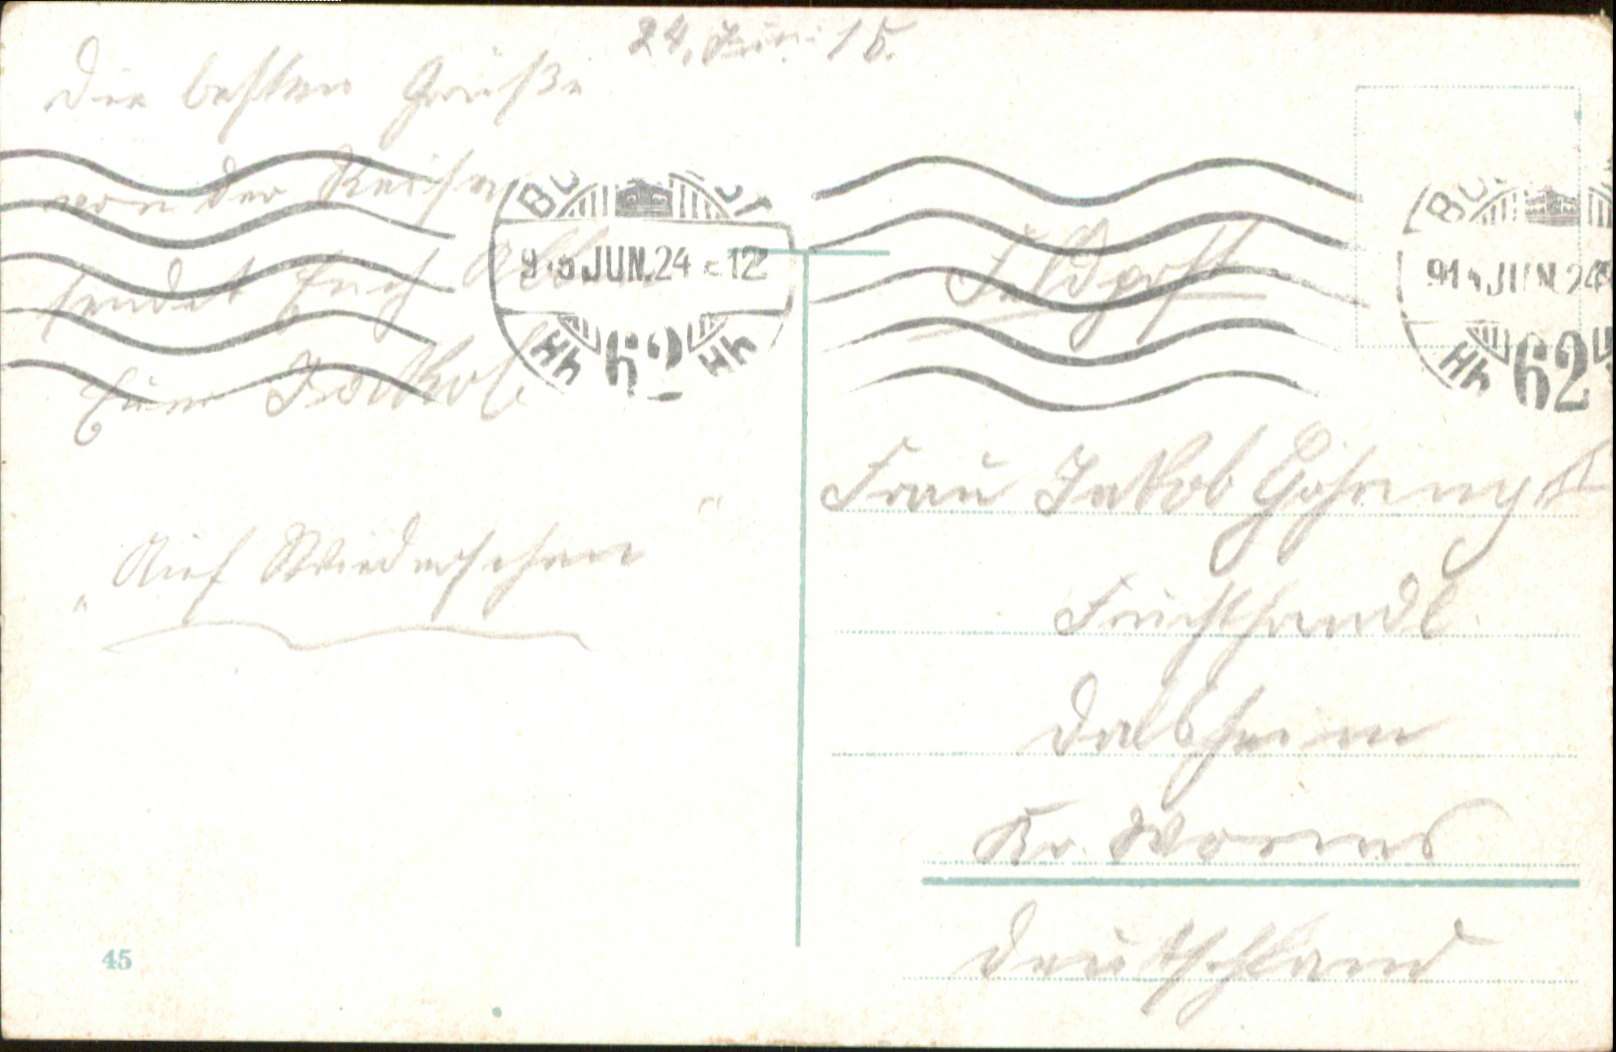 24. Juni 15.
Die besten Grüße
von der Reise
sendet Euch
Euer Jakob.
„Auf Wiedersehen"
45
915 JUN. 24 - 12
62
Feldpost
915 JUN. 24
62
Frau Jakob
Fruchthandl.
Dalsheim
Kr. Worms
Deutschland